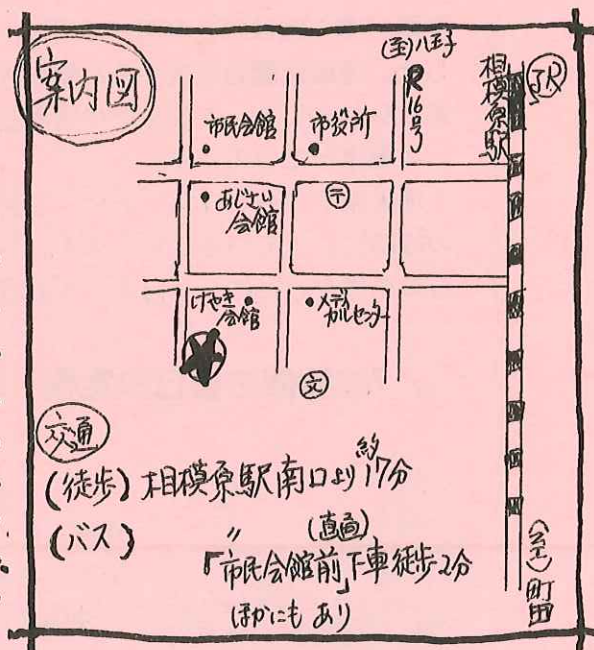 案内図
(至)八王子
R16号
相模原駅
JR
市民会館
市役所
あじさい会館
〒
けやき会館
メディカルセンター
文
(至)町田
交通
(徒歩) 相模原駅南口より約17分
(バス) 〃 (直通)
「市民会館前」下車徒歩2分
ほかにもあり